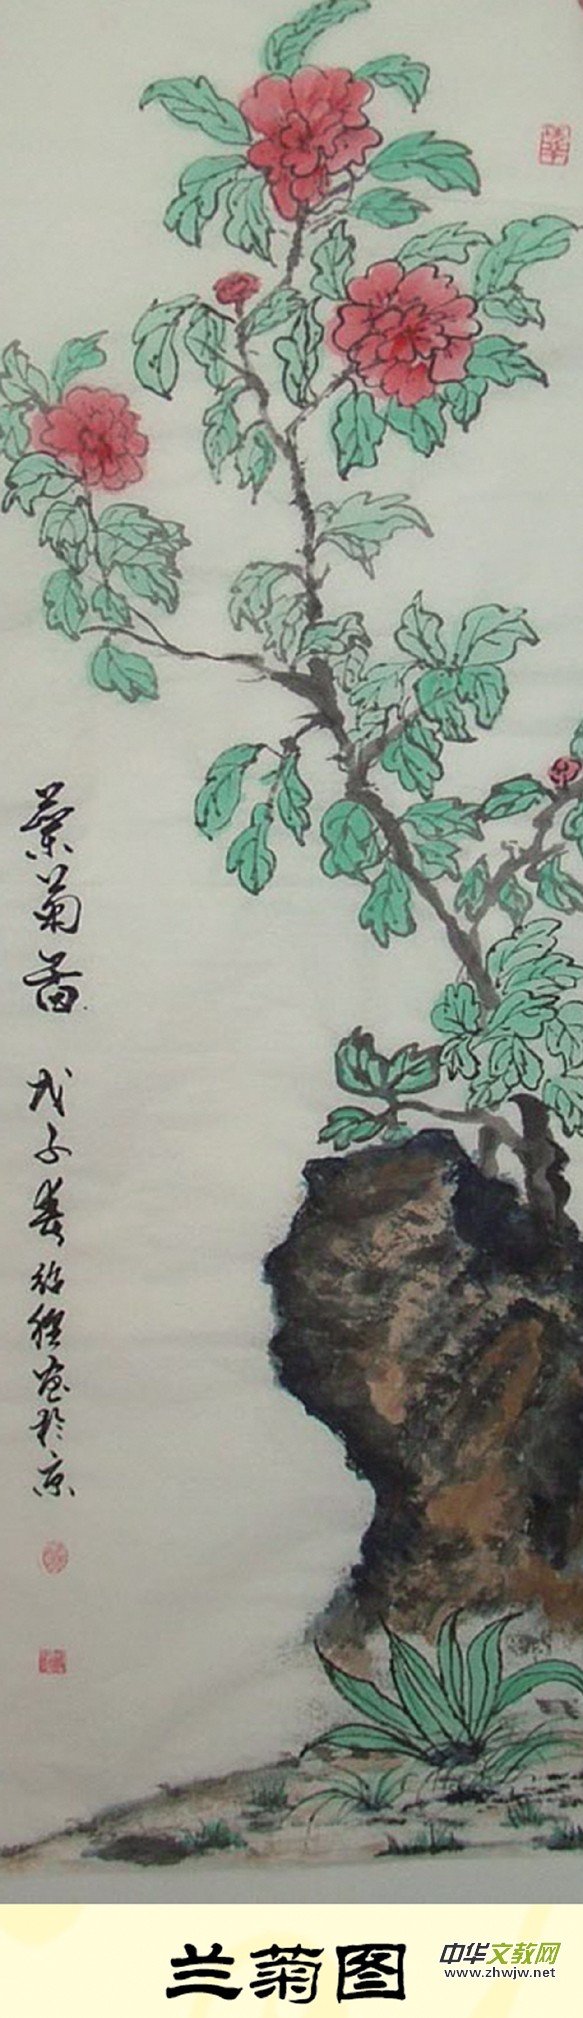 兰菊图
戊子春绍程画于京
兰菊图
中华文教网
www.zhwjw.net